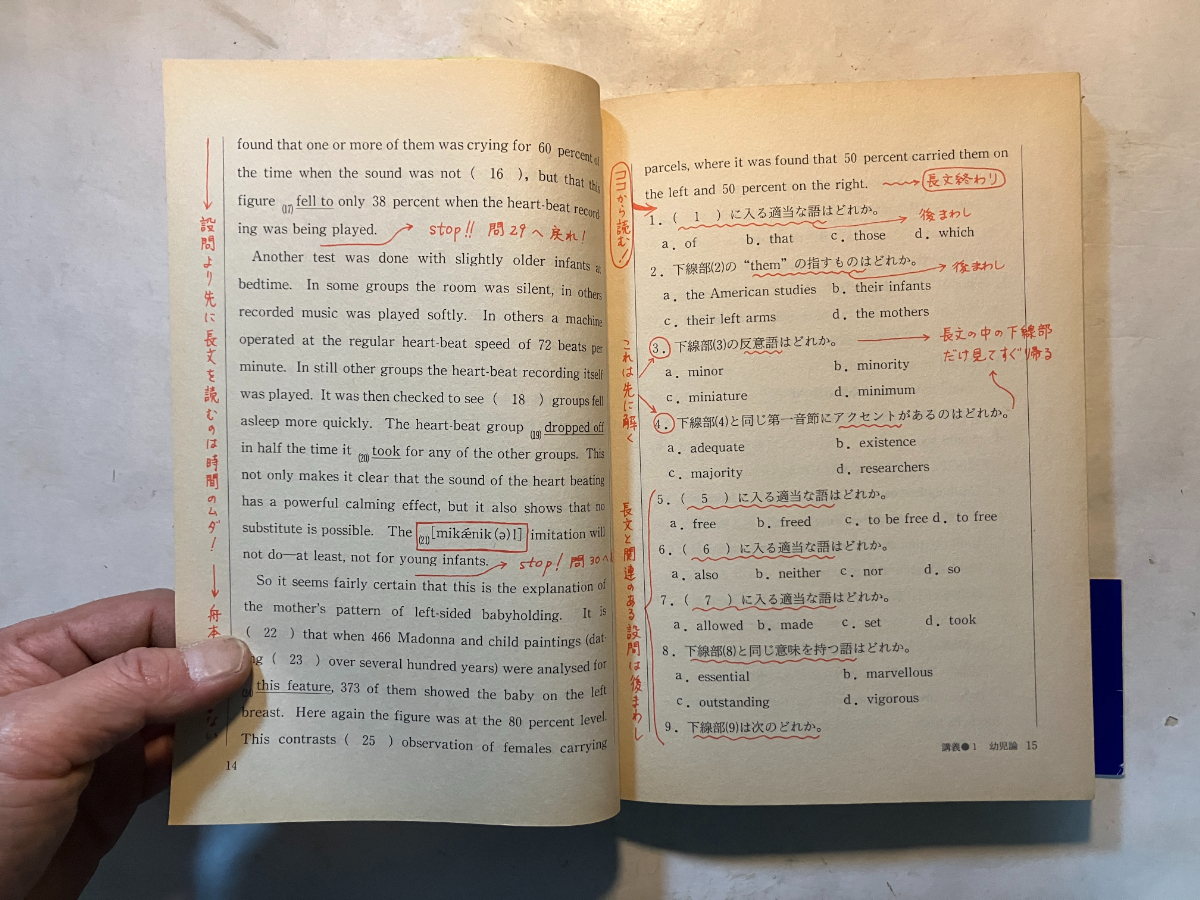 found that one or more of them was crying for 60 percent of
the time when the sound was not ( 16 ), but that this
figure (17)fell to only 38 percent when the heart-beat record
ing was being played.
stop!! 問29へ戻れ!
Another test was done with slightly older infants at
bedtime. In some groups the room was silent, in others
recorded music was played softly. In others a machine
operated at the regular heart-beat speed of 72 beats per
minute. In still other groups the heart-beat recording itself
was played. It was then checked to see ( 18 ) groups fell
asleep more quickly. The heart-beat group (19)dropped off
in half the time it (20)took for any of the other groups. This
not only makes it clear that the sound of the heart beating
has a powerful calming effect, but it also shows that no
substitute is possible. The (21)[mikǽnik(ə)l] imitation will
not do—at least, not for young infants.
stop! 問30へ
So it seems fairly certain that this is the explanation of
the mother's pattern of left-sided babyholding. It is
( 22 ) that when 466 Madonna and child paintings (dat-
ng ( 23 ) over several hundred years) were analysed for
this feature, 373 of them showed the baby on the left
breast. Here again the figure was at the 80 percent level.
This contrasts ( 25 ) observation of females carrying
14
設問より先に長文を読むのは時間のムダ!
舟本
ない
parcels, where it was found that 50 percent carried them on
the left and 50 percent on the right.
長文終わり
ココから読む!
1. ( 1 )に入る適当な語はどれか。
後まわし
a. of b. that c. those d. which
2. 下線部(2)の“them”の指すものはどれか。
後まわし
a. the American studies b. their infants
c. their left arms d. the mothers
これは先に解く
3. 下線部(3)の反意語はどれか。
長文の中の下線部
だけ見てすぐ帰る
a. minor b. minority
c. miniature d. minimum
4. 下線部(4)と同じ第一音節にアクセントがあるのはどれか。
a. adequate b. existence
c. majority d. researchers
長文と関連のある設問は後まわし
5. ( 5 )に入る適当な語はどれか。
a. free b. freed c. to be free d. to free
6. ( 6 )に入る適当な語はどれか。
a. also b. neither c. nor d. so
7. ( 7 )に入る適当な語はどれか。
a. allowed b. made c. set d. took
8. 下線部(8)と同じ意味を持つ語はどれか。
a. essential b. marvellous
c. outstanding d. vigorous
9. 下線部(9)は次のどれか。
講義●1 幼児論 15